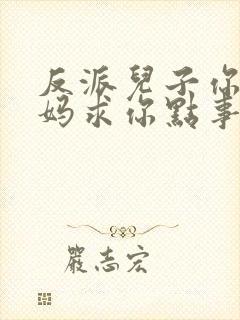 反派兒子你
妈求你點事
嚴志宏